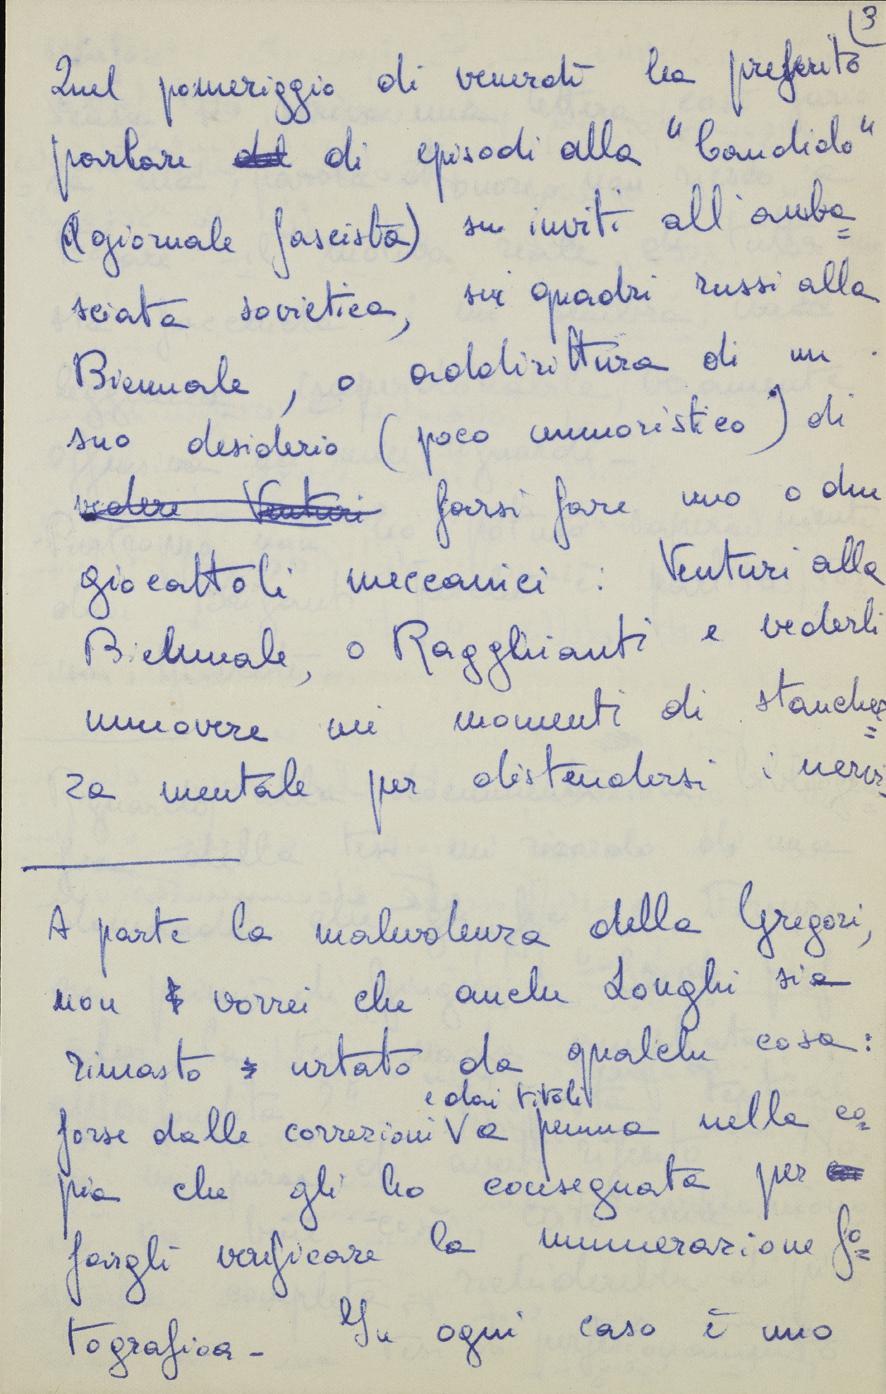 3
Quel pomeriggio di venerdì ha preferito
parlare del di episodi alla "Candido"
(il giornale fascista) su inviti all'amba=
sciata sovietica, sui quadri russi alla
Biennale, o addirittura di un
suo desiderio (poco umoristico) di
vedere Venturi farsi fare uno o due
giocattoli meccanici: Venturi alla
Biennale, o Ragghianti e vederli
muovere nei momenti di stanchez=
za mentale per distendersi i nervi.
A parte la malevolenza della Gregori,
non vorrei che anche Longhi sia
rimasto urtato da qualche cosa:
e dai titoli
forse dalle correzioni V a penna nella co=
pia che gli ho consegnata per
fargli verificare la numerazione fo=
tografica - In ogni caso è uno